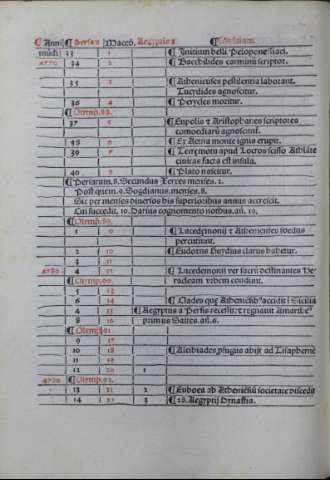 ¶ Anni ¶ Persaꝝ Maced. Aegyptioꝝ
mūdi 33 1 ¶ Initium belli Peloponesiaci.
4770 34 2 ¶ Bacchilides carminū scriptor.
35 3 ¶ Athenienses pestilentia laborant.
Tucydides agnoscitur.
36 4 ¶ Pericles moritur.
¶ Olymp. 88.
37 5 ¶ Eupolis & Aristophanes scriptores
comoediarū agnoscunt.
38 6 ¶ Et Aetna monte ignis erupit.
39 7 ¶ Terremotu apud Locros scisso Athlāte
ciuitas facta est insula.
40 8 ¶ Plato nascitur.
¶ Persarum. 8. Secundus Xerxes menses. 2.
Post quem. 9. Sogdianus menses. 8.
Sic per menses diuersos his superioribus annus accrescit.
Cui succedit. 10. Darius cognomento nothus. añ. 19.
¶ Olymp. 89.
1 9 ¶ Lacedemonij & Athenienses foedus
percutiunt.
2 10 ¶ Eudoxus clarus habetur.
3 11
4780 4 12 ¶ Lacedemonij ver sacrū destinantes He
¶ Olymp. 90. racleam vrbem condunt.
5 13
6 14 ¶ Clades quę Atheniēsib⁹ accidit ī Sicilia
¶ Aegyptus a Persis recessit: & regnauit
8 16 primus Saites. añ. 6.
¶ Olymp. 91.
9 17
10 18 ¶ Alcibiades ꝓfugus abijt ad Tisaphernē
11 19
12 20 1
4790 ¶ Olymp. 92.
13 21 2 ¶ Euboea ab Atheniēsiū societate discedit
14 22 3 ¶ 28. Aegyptij Dynastia.